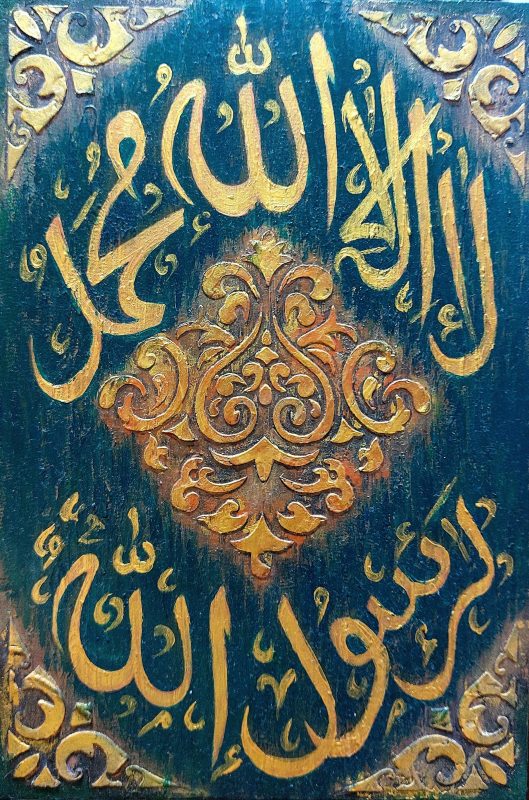 لا اله الا الله محمد
رسول الله